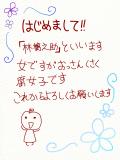 はじめまして!!
「林檎之助」といいます
女ですがおっさんくさく
腐女子です
これからよろしくお願いします